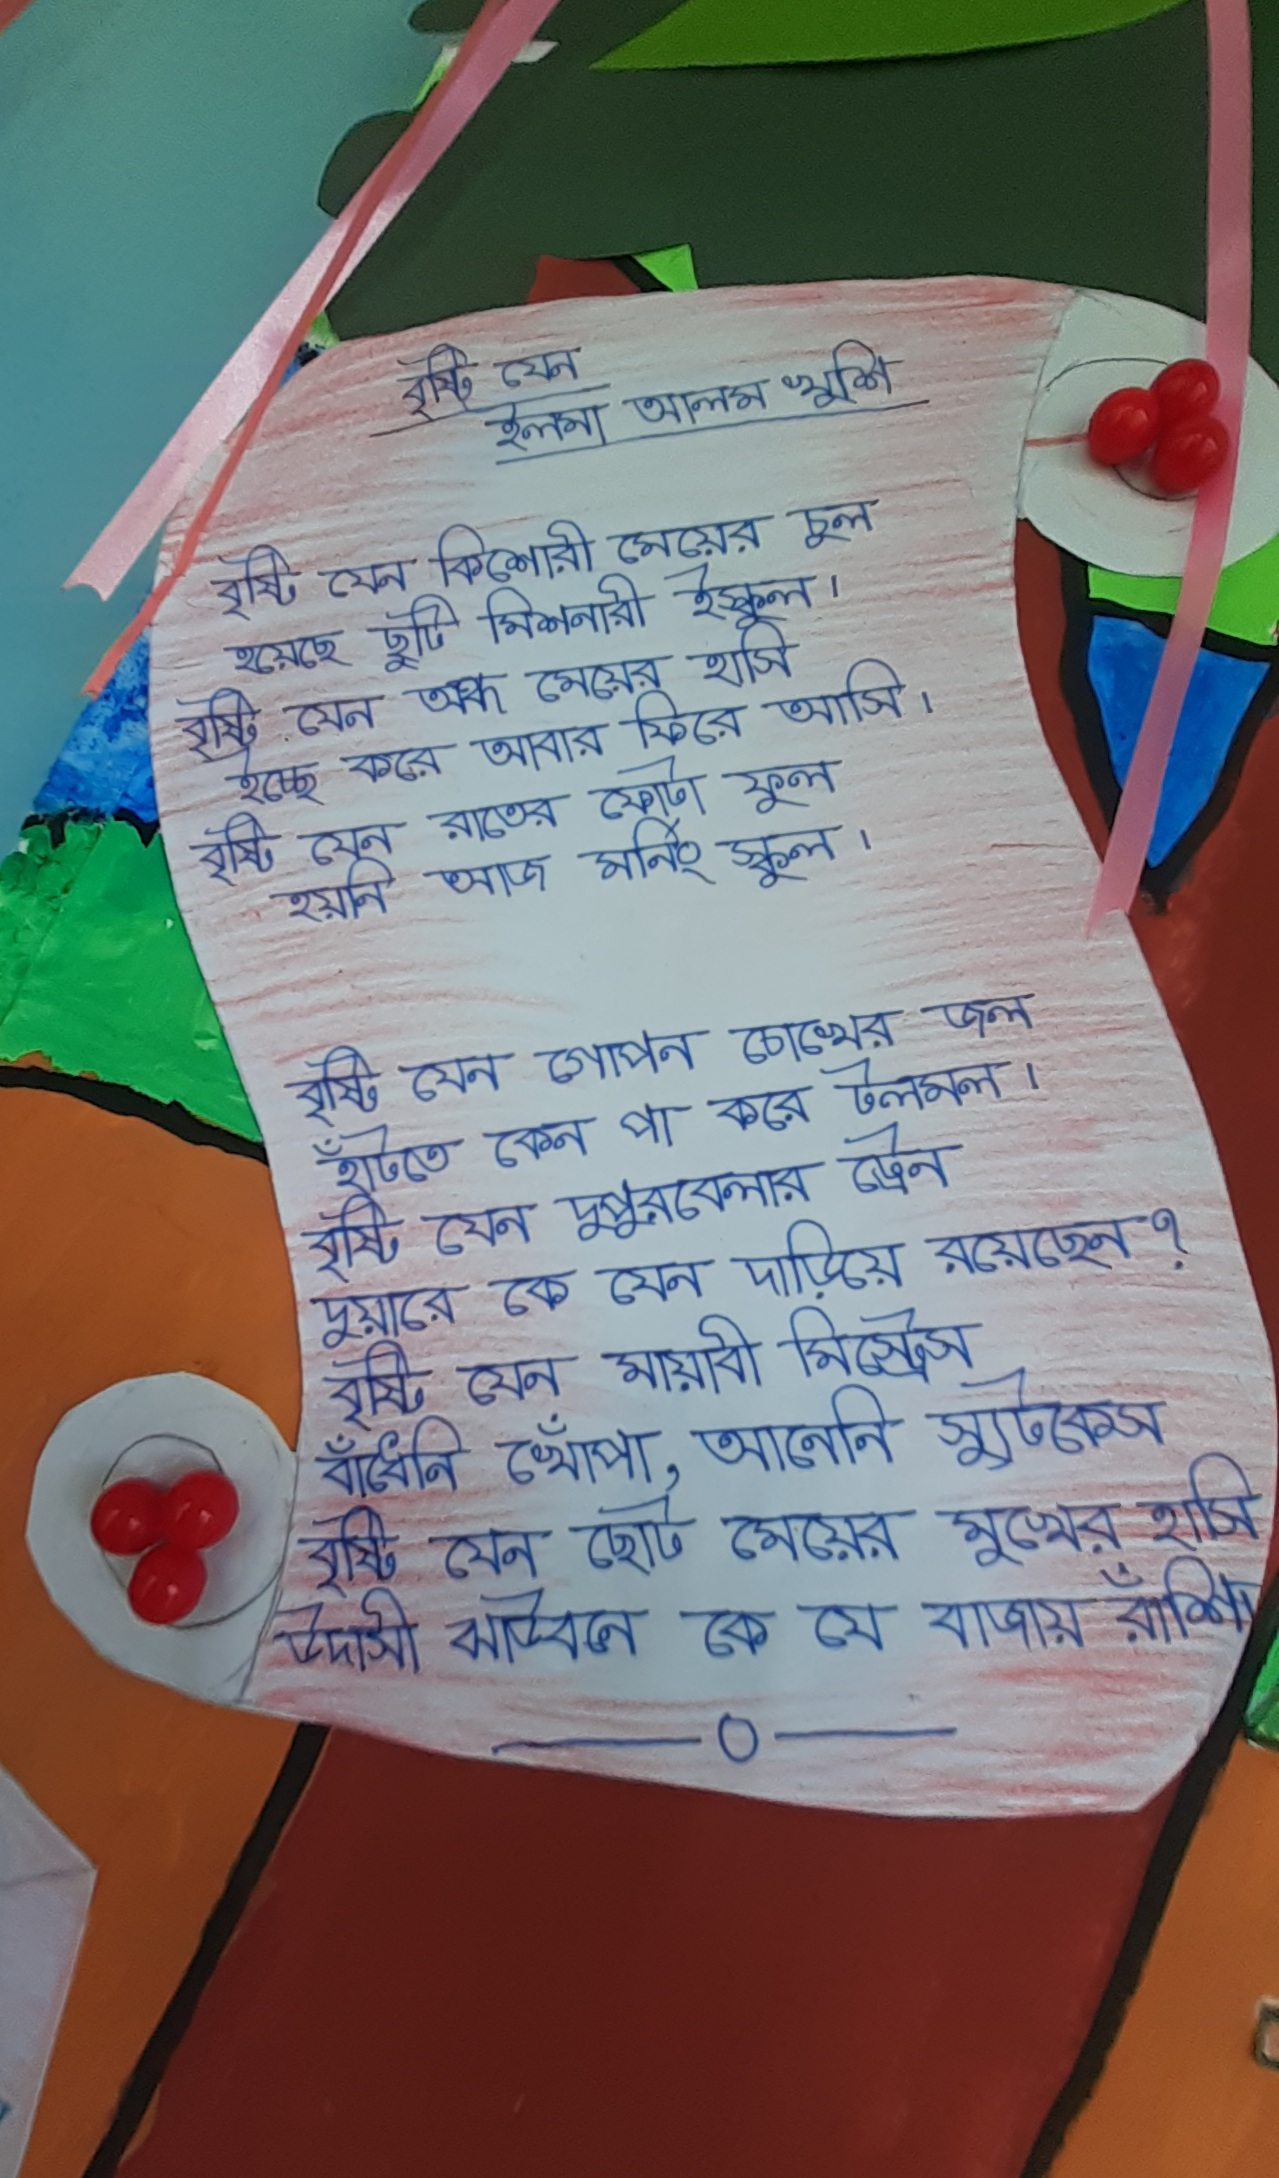 বৃষ্টি যেন
ইলমা আলম খুশি
বৃষ্টি যেন কিশোরী মেয়ের চুল
হয়েছে ছুটি মিশনারী ইস্কুল।
বৃষ্টি যেন অন্ধ মেয়ের হাসি
ইচ্ছে করে আবার ফিরে আসি।
বৃষ্টি যেন রাতের ফোটা ফুল
হয়নি আজ মর্নিং স্কুল।
বৃষ্টি যেন গোপন চোখের জল
হাঁটতে কেন পা করে টলমল।
বৃষ্টি যেন দুপুরবেলার ট্রেন
দুয়ারে কে যেন দাড়িয়ে রয়েছেন?
বৃষ্টি যেন মায়াবী মিস্ট্রেস
বাঁধেনি খোঁপা, আনেনি স্যুটকেস
বৃষ্টি যেন ছোট মেয়ের মুখের হাসি
উদাসী ঝাউবনে কে যে বাজায় বাঁশি।